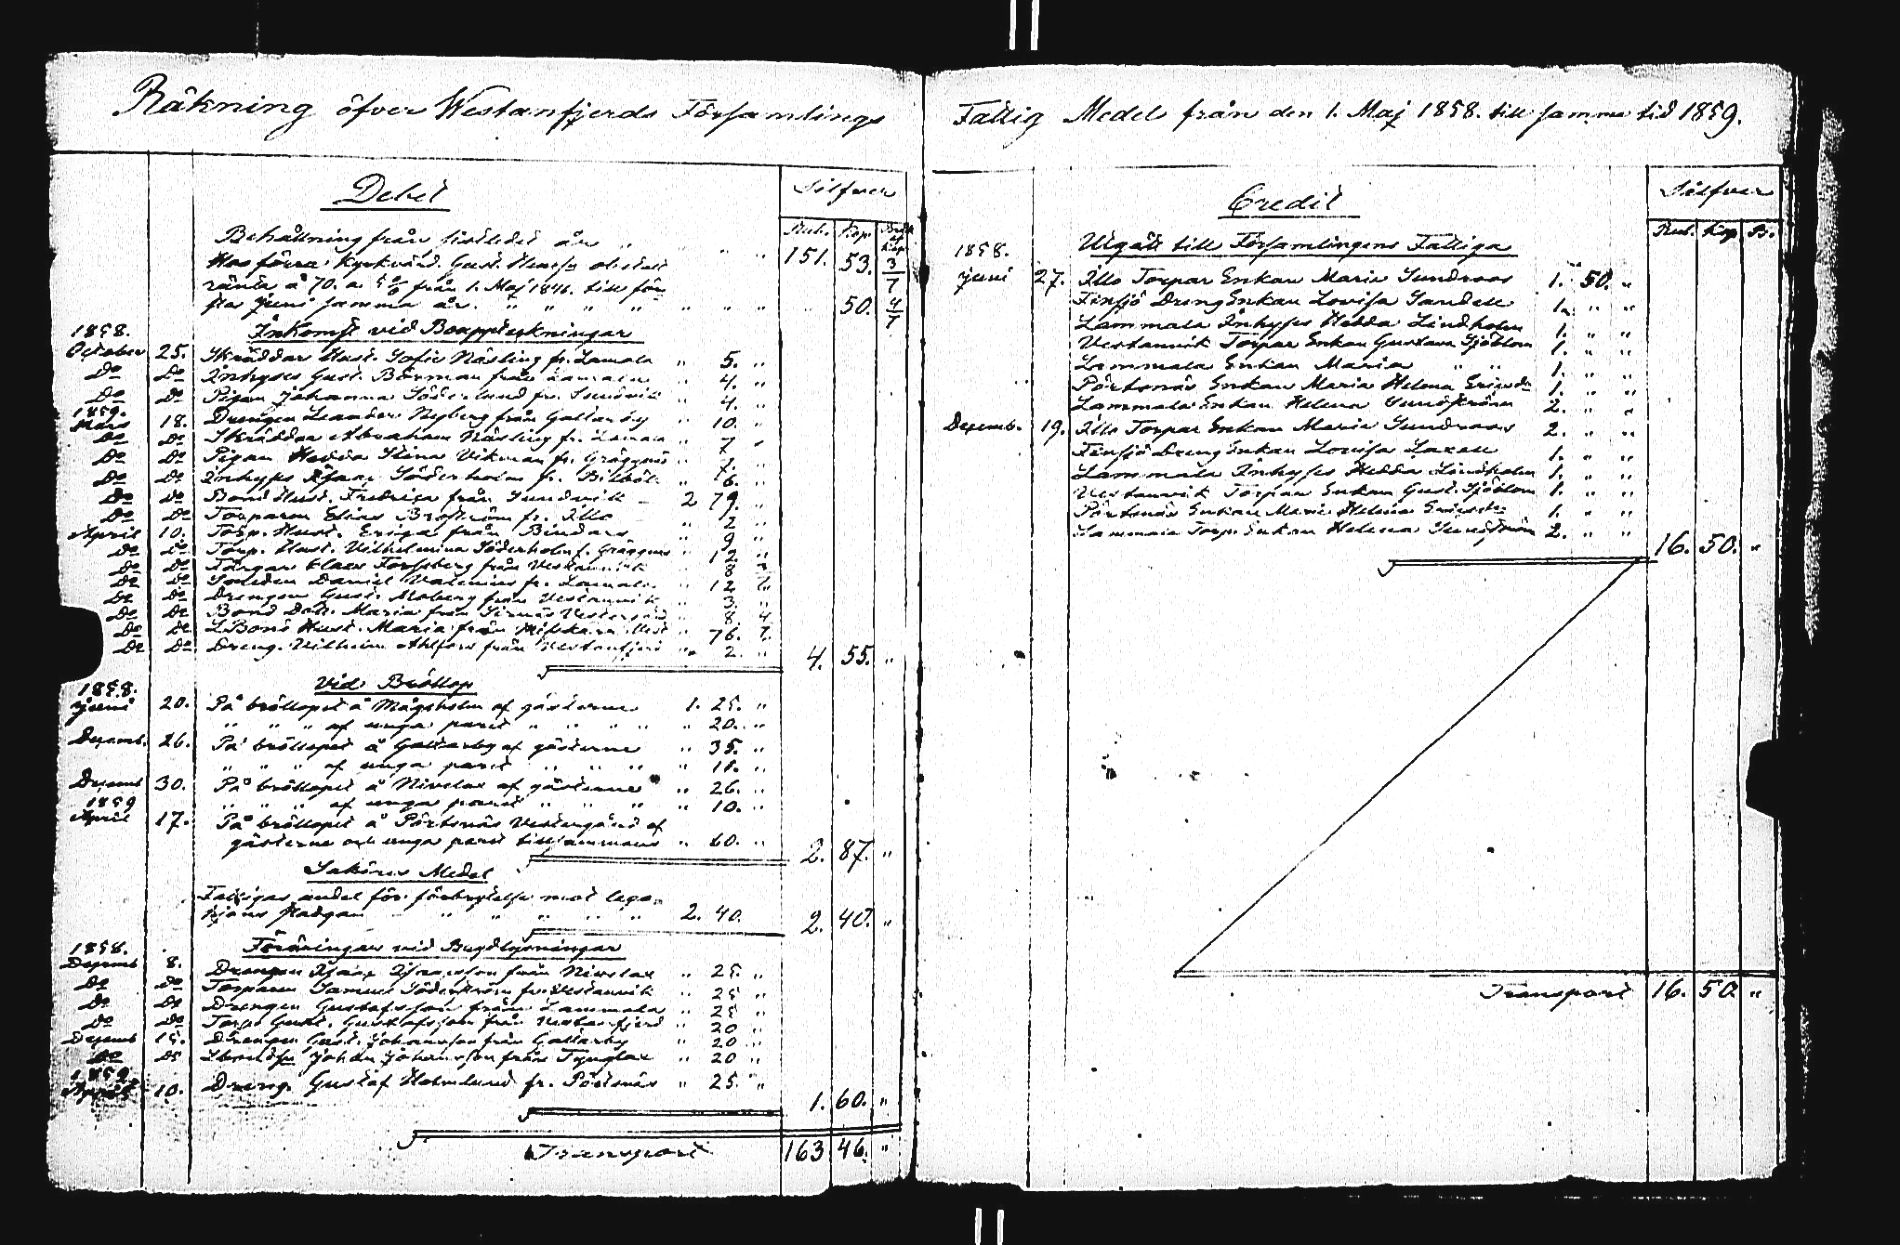 Räkning öfver Westanfjerds Församlings
Debet
Silfver
Rub. Kop.
Behållning från sistledet år " " " 151. 53. 3/7
Hos förra Kyrkvärd. Gust.
ränta å 70. a från 1. Maj 1846. till för
sta Juni samma år. " " " " " " " " 50. 4/7
Inkomst vid Bouppteckningar
1858.
October 25. Skräddar Hust. Sofia Näsling fr. Lamala " 5. "
Do Do Inhyses Gust. Böfman från Lamala " 4. "
Do Do Pigan Johanna Söderlund fr. Sundvik " 4. "
1859.
Mars 18. Drengen Leander Nyberg från Galtarby " 10. "
Do Do Skräddar Abraham Näsling fr. Lamala " 7 "
Do Do Pigan Hedda Stina Vikman fr. Gräggnäs " 7. "
Do Do Inhyses Isaac Söderholm fr. Billböle " 6. "
Do Do Bond Hust. Fredrica från Sundvik 2 79. "
Do Do Torparen Elias Broström fr. Illo " 2 "
April 10. Torp. Hust. Erica från Bindars " 9 "
Do Do Torp. Hust. Vilhelmina Söderholm f. Gräggnäs " 12 "
Do Do Torparn Claes Forssberg från Vestanvik " 8
Do Do Daniel Valenius fr. Lamala. " 12
Do Do Drengen Gust. Moberg från Vestanvik " 3. "
Do Do Bond Dott. Maria från 8. 4
Do Do Bond Hust. Maria från " 76. 7.
Do Do Dreng. Vilhelm Ahlfors från Vestanfjerd " 2. " 4. 55. "
Vid Bröllop
1858.
Juni 20. På bröllopet å Mågsholm af gästerne 1. 25. "
" " " af unga paret " " " " " 20. "
Decemb. 26. På bröllopet å Galtarby af gästerne " 35. "
" " " af unga paret " " " " 11. "
Decemb 30. På bröllopet å Nivelax af gästerne " 26. "
" " " af unga paret " " " " 10. "
1859
April 17. På bröllopet å Pörtsnäs Vestergård af
gästerne och unga paret tillsammans " 60. " 2. 87. "
Saköres Medel
Fattigas andel för förbrytelse mot lego-
hjons stadgan " " " " " 2. 40. 2. 40. "
Föräringar vid Brudlysningar
1858.
Decemb 8. Drengen Isaac Isacsson från Nivelax " 25. "
Do Do Torparen Samuel Söderström fr. Vestanvik " 25 "
Do Do Drengen Gustafsson från Lammala " 25 "
Do Do Torp. Gust. Gustafsson från Vestanfjerd " 20 "
Decemb 15. Drengen Gust. Johansson från Galtarby " 20 "
Do Do Johan Johansson från Tynglax " 20 "
1859
April 10. Dreng. Gustaf Holmlund fr. Pörtsnäs " 25. " 1. 60. "
Transport 163 46. "
Fattig Medel från den 1. Maj 1858. till samma tid 1859.
Credit
Silfver
Rub. Kop. Br.
1858. Utgått till Församlingens Fattiga
Juni 27. Illo Torpar Enkan Maria Sundroos 1. 50. "
Finsjö Dreng Enkan Lovisa Sandell 1. " "
Lammala Inhyses Hedda Lindholm 1. " "
Vestanvik Torpar Enkan Gustava Sjöblom 1. " "
Lammala Enkan Maria " " 1. " "
Pörtsnäs Enkan Maria Helena Ericsdr 1. " "
Lammala Enkan Helena Sundström 2. " "
Decemb. 19. Illo Torpar Enkan Maria Sundroos 2. " "
Finsjö Dreng Enkan Lovisa Laxell 1. " "
Lammala Inhyses Hedda Lindholm 1. " "
Vestanvik Torpar Enkan Gust. Sjöblom 1. " "
Pörtsnäs Enkan Maria Helena Ericsdr 1. " "
Lammala Torp. Enkan Helena Sundström 2. " " 16. 50. "
Transport 16. 50. "